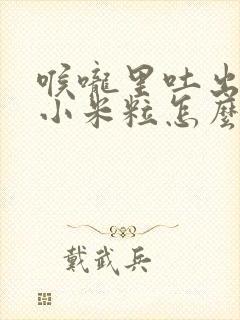 喉嚨里吐出
小米粒怎麼
戴武兵